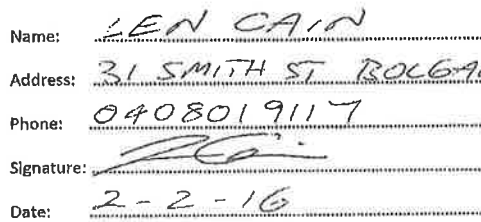 Name: LEN CAIN
Address: 31 SMITH ST
Phone: 0408019117
Signature:
Date: 2-2-16